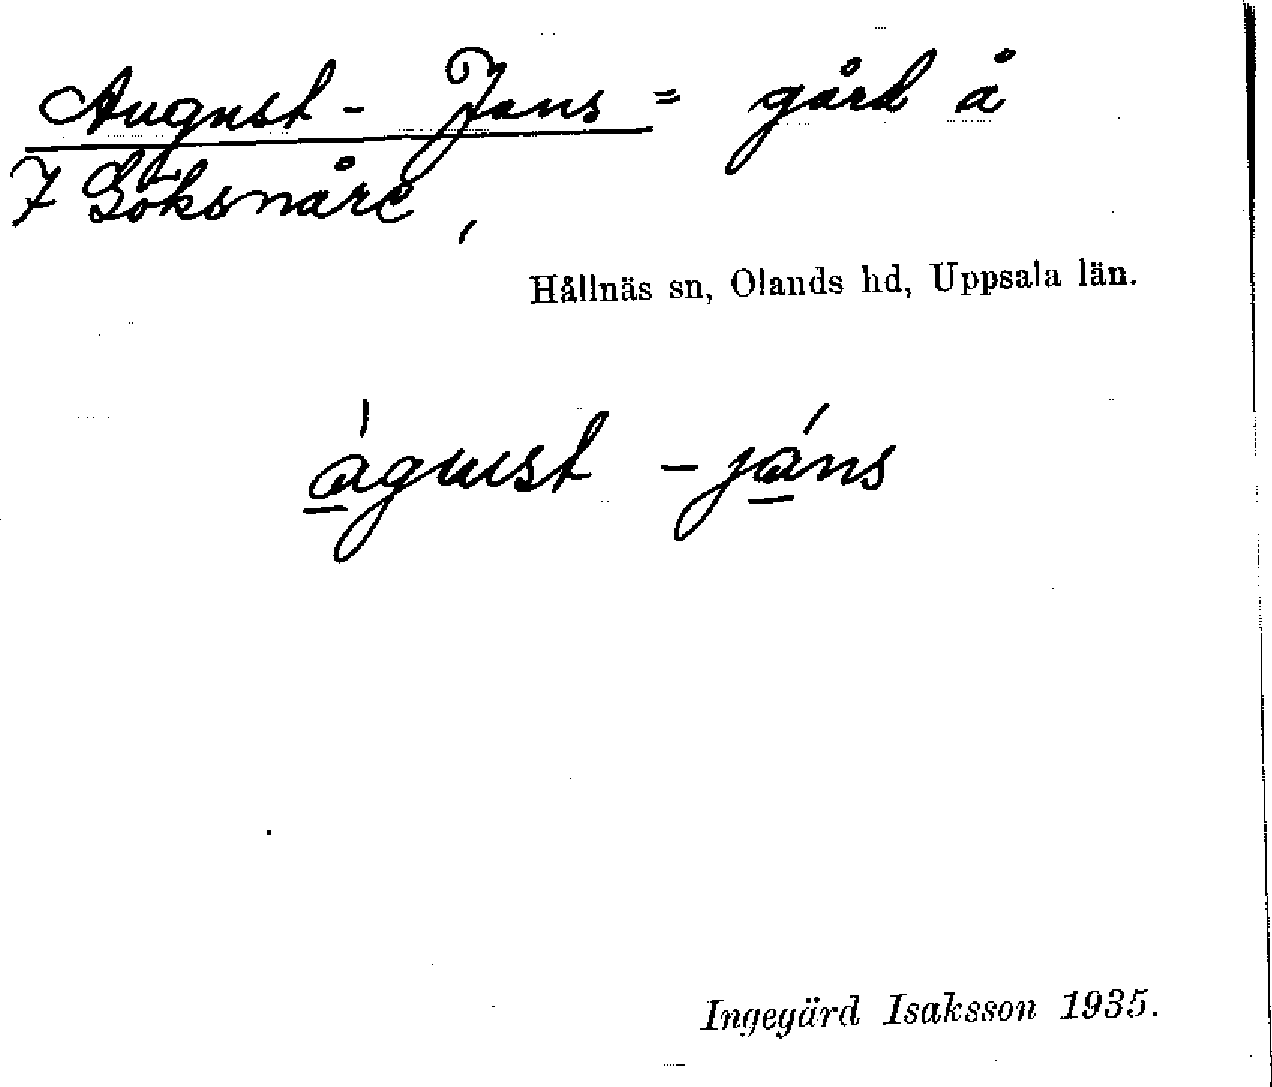 August - Jans = gård å
7 Göksnåre,
Hållnäs sn, Olands hd, Uppsala län.
águst - jáns
Ingegärd Isaksson 1935.